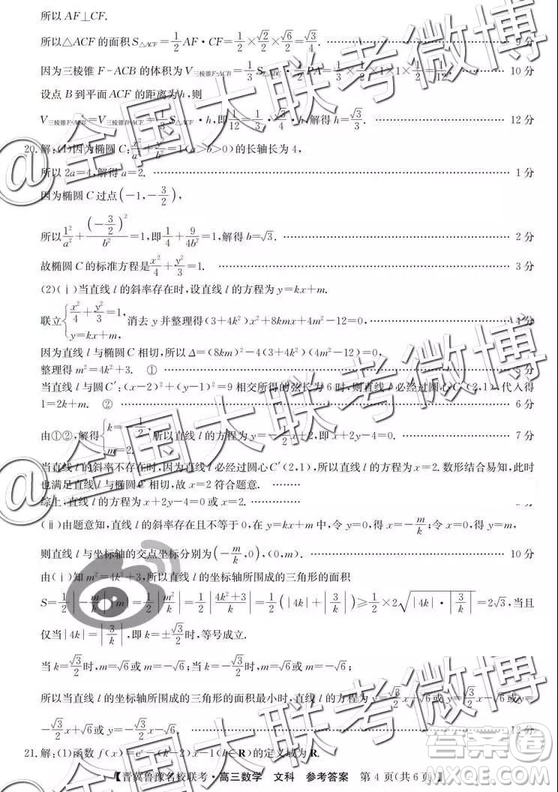 所以 AF⊥CF.
所以△ACF 的面积 S△ACF=1/2 AF·CF=1/2×√2/2×√6/2=√3/4.
因为三棱锥 F-ACB 的体积为 V三棱锥F-ACB=1/3 S 10 分
设点 B 到平面 ACF 的距离为 h,则
V三棱锥F-ACB=V三棱锥 =1/3 S△ACF·h,即 1/12=1/3× ·h,解得 h=√3/3.
20.解:(1)因为椭圆 C: =1(a>b>0)的长轴长为 4,
所以 2a=4,解得 a=2. 1 分
因为椭圆 C 过点(-1,-3/2),
所以 1²/a²+(-3/2)²/b²=1,即 1/4+9/4b²=1,解得 b=√3. 2 分
故椭圆 C 的标准方程是 x²/4+y²/3=1. 3 分
(2)(ⅰ)当直线 l 的斜率存在时,设直线 l 的方程为 y=kx+m.
联立{x²/4+y²/3=1, y=kx+m. 消去 y 并整理得(3+4k²)x²+8kmx+4m²-12=0, 4 分
因为直线 l 与椭圆 C 相切,所以 Δ=(8km)²-4(3+4k²)(4m²-12)=0,
整理得 m²=4k²+3. ①
当直线 l 与圆 C′:(x-2)²+(y-1)²=9 相交所得的弦长为 6 时,则直线 l 必经过圆心 C′(2,1),代入得
1=2k+m. ②
由①②,解得 所以直线 l 的方程为 y= 即 x+2y-4=0. 7 分
当直线 l 的斜率不存在时,因为直线 l 必经过圆心 C′(2,1),所以直线 l 的方程为 x=2. 数形结合易知,此时
也满足直线 l 与椭圆 C 相切,故 x=2 符合题意.
综上,直线 l 的方程为 x+2y-4=0 或 x=2.
(ⅱ)由题意知,直线 l 的斜率存在且不等于 0,在 y=kx+m 中,令 y=0,得 x=-m/k;令 x=0,得 y=m,
则直线 l 与坐标轴的交点坐标分别为(-m/k,0),(0,m). 10 分
由(ⅰ)知 m²=4k²+3,所以直线 l 与坐标轴所围成的三角形的面积
S=1/2|-m/k·m|=1/2|m²/k|=1/2|4k²+3/k|=1/2(|4k|+|3/k|)≥1/2×2√|4k|·|3/k|=2√3,当且
仅当|4k|=|3/k|,即 k=±√3/2 时,等号成立.
当 k=√3/2 时,m=√6 或 m=-√6;当 k=-√3/2 时,m=√6 或 m=-√6.
所以当直线 l 与坐标轴所围成的三角形的面积最小时,直线 l 的方程为 y=√3/2 x+√6 或 y=√3/2 x-√6 或 y=
-√3/2 x+√6 或 y=-√3/2 x-√6.
21.解:(1)函数 f(x)= -(k-2)x-1(k∈R)的定义域为 R.
【晋冀鲁豫名校联考·高三数学 文科 参考答案 第 4 页(共 6 页)】
@全国大联考微博
@全国大联考微博
@全国大联考微博
答案圈